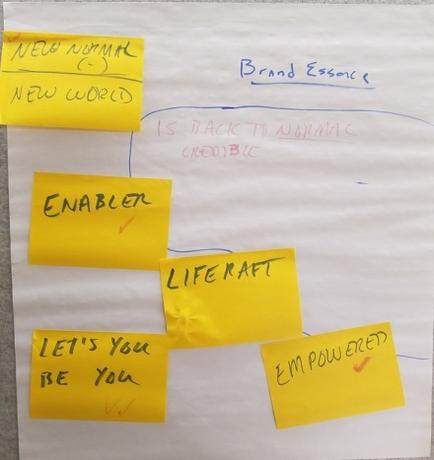 NEW NORMAL
(-)
NEW WORLD
Brand Essence
IS BACK TO NORMAL
CREDIBLE
ENABLER
LIFERAFT
LET'S YOU
BE YOU
EMPOWERED